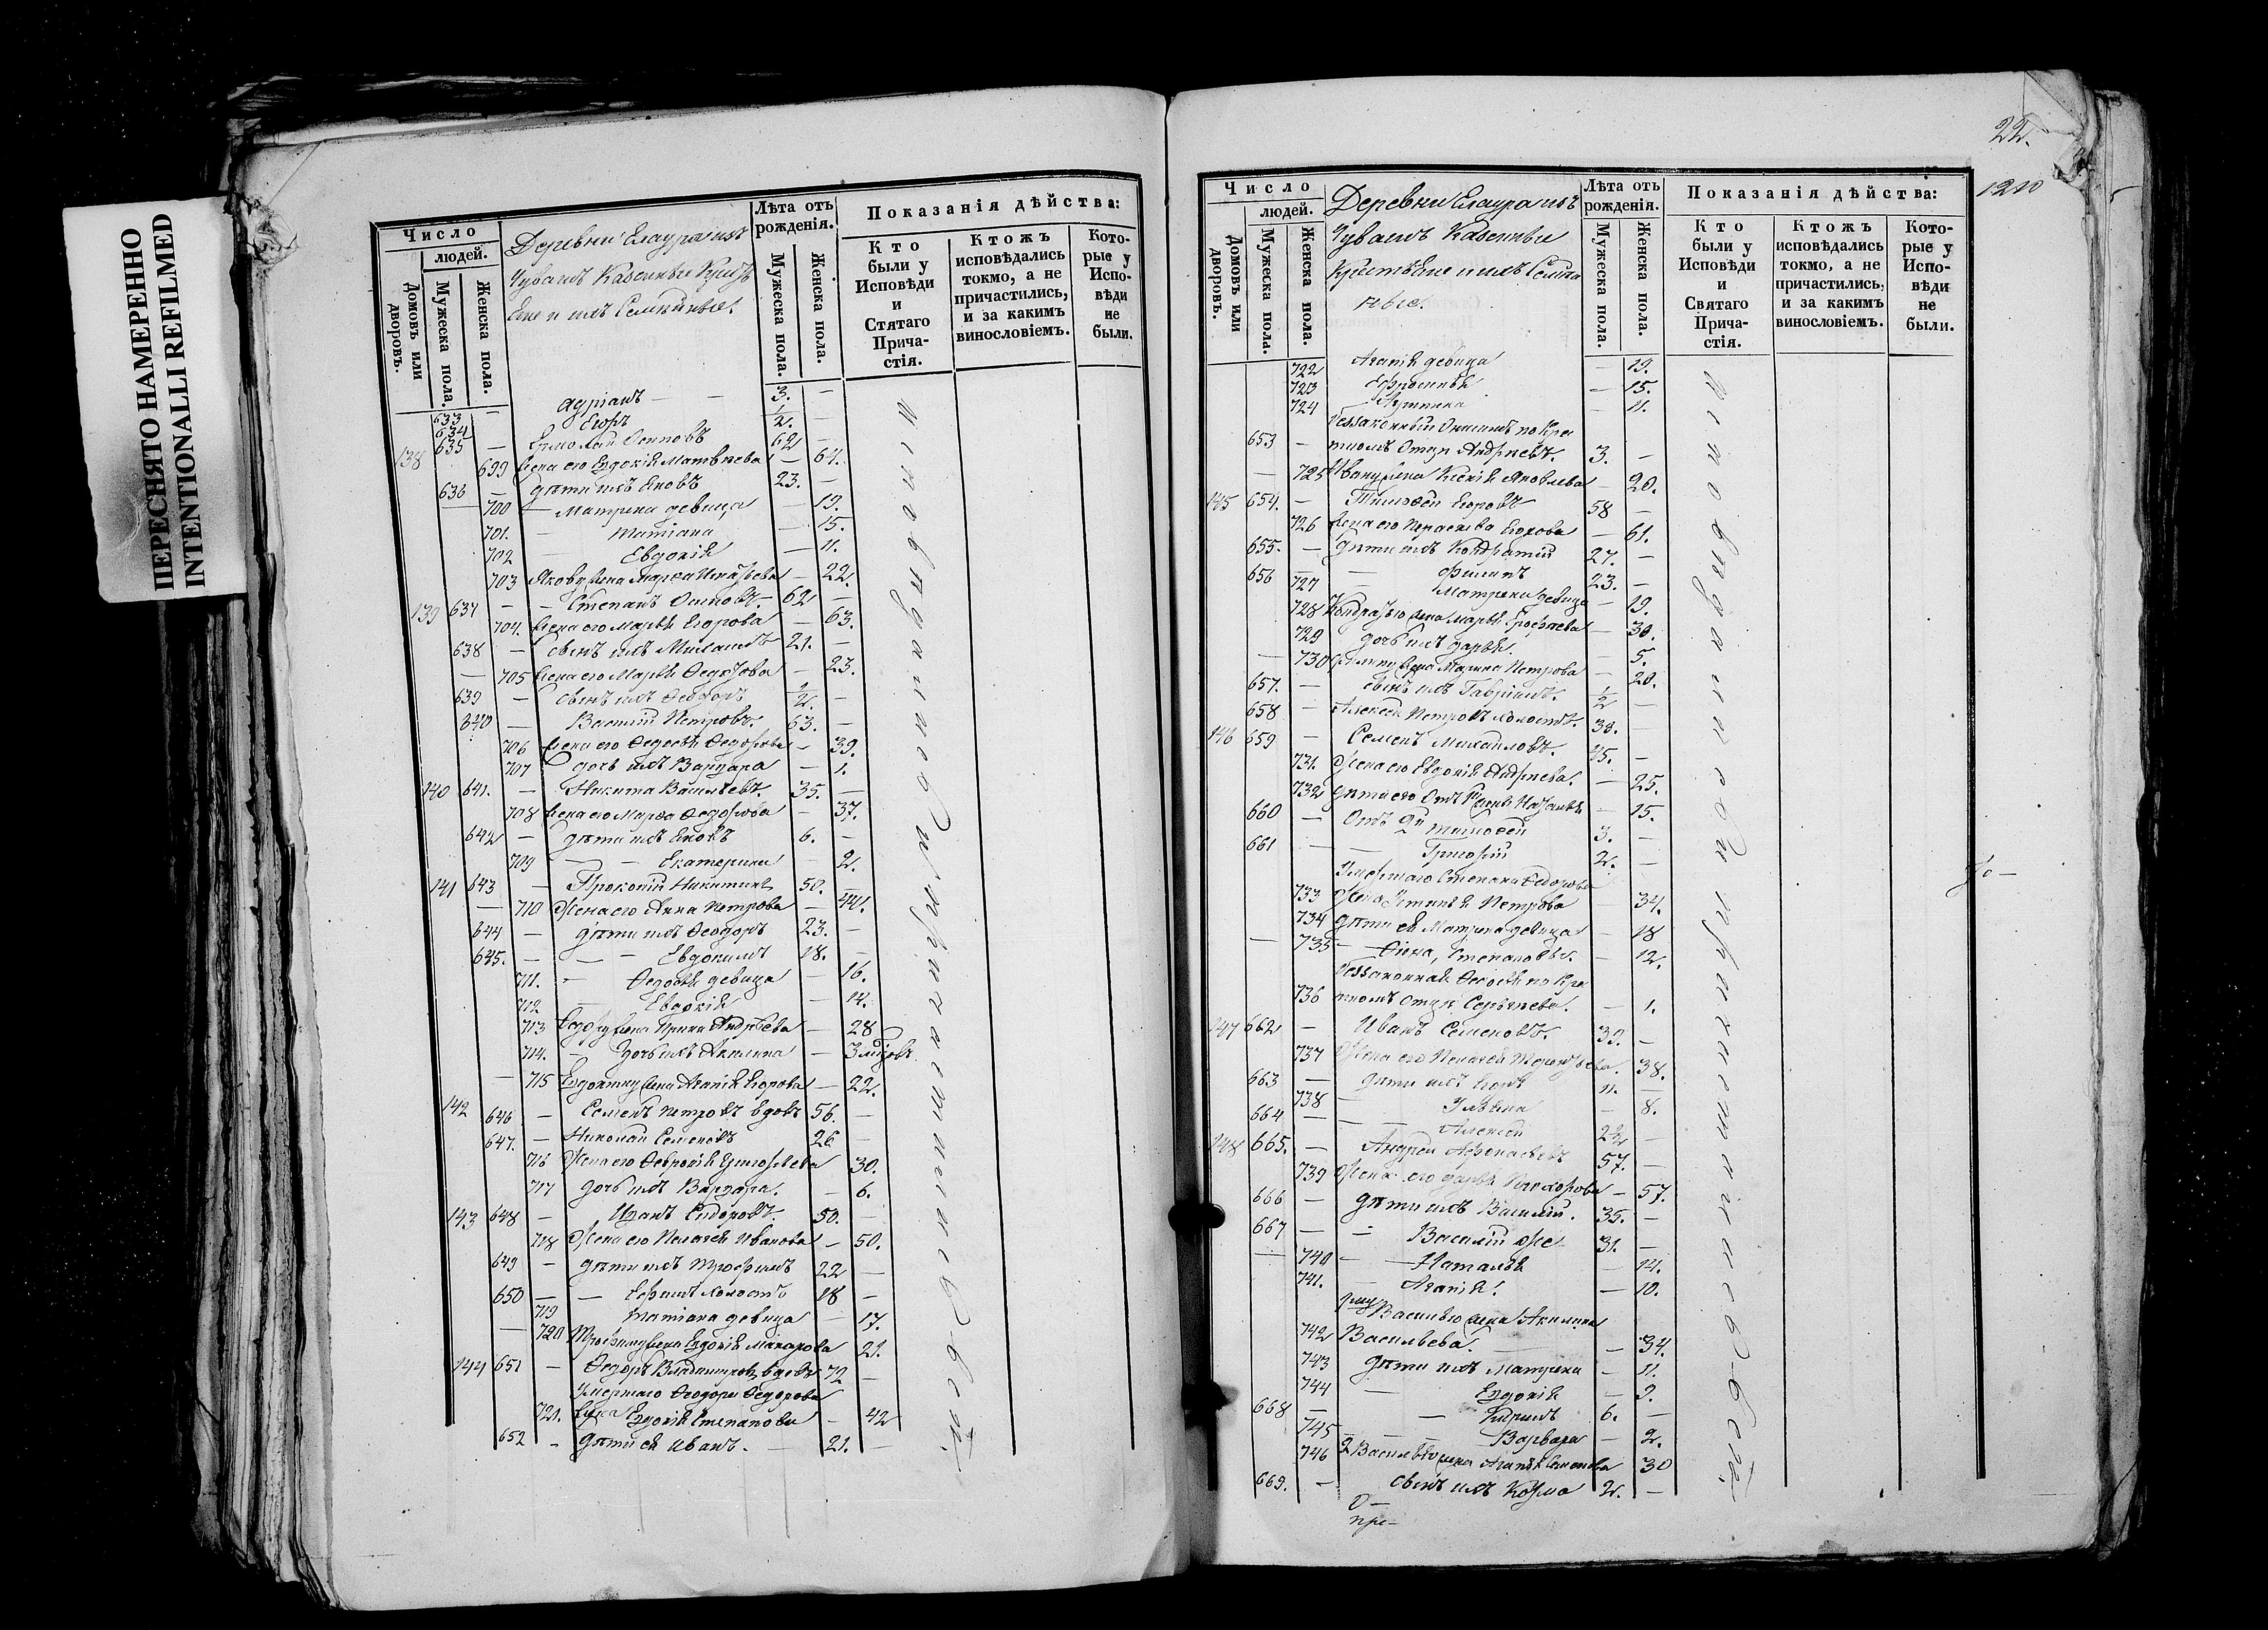 ПЕРЕСНЯТО НАМЕРЕННО
INTENTIONALLI REFILMED
Число
людей.
Домовъ или дворовъ.
Мужеска пола.
Женска пола.
Деревни Елаура изъ
Чувашъ Казенные Крестья
ене и ихъ Семейные.
Лѣта отъ рожденія.
Мужеска пола.
Женска пола.
Показанія дѣйства:
Кто были у Исповѣди и Стятаго Прича-стія.
Ктожъ исповѣдались токмо, а не причастились, и за какимъ винословіемъ.
Кото-рые у Испо-вѣди не были.
633 — Адріанъ — 3. —
634 Егоръ 1/2. —
138 635 — Ермолай Осиповъ 62 —
699 Жена его Евдокія Матвѣева — 64.
636 — Дѣти ихъ Яковъ 23. —
700 — Матрена девица — 19.
701. — Татіана — 15.
702 — Евдокія — 11.
703 Якову жена Марѳа — 22.
139 637 — Степанъ Осиповъ. 62 —
704. Жена его Марья Егорова — 63.
638 — Сынъ ихъ 21. —
— 705 Жена его Марья Ѳедорова — 23.
639 — Сынъ ихъ Ѳеодоръ 1/2. —
640 — Василій Петровъ. 63. —
706 Жена его Ѳедосья Ѳедорова — 39.
707 дочь ихъ Варвара — 1.
140 641. — Никита Васильевъ. 35. —
708 Жена его Марѳа Ѳедорова — 37.
642 — Дѣти ихъ Яковъ 6. —
709 — — Екатерина — 2.
141 643 — Прокопій Никитинъ 50. —
— 710 Жена его Анна Петрова — 44.
644 — дѣти ихъ Ѳеодоръ 23. —
645. — — Евдокимъ 18. —
711. — Ѳедосья девица — 16.
712 — Евдокія — 14.
713 Ѳедору жена Ирина Андреева — 28
714. — дочь ихъ Акилина — 3
— 715 Евдокиму жена Агапія Егорова — 22.
142 646 — Семенъ Петровъ вдовъ 56. —
647. — Николай Семеновъ 26 —
716 Жена его Ѳевронія Григорьева 30.
717 дочь ихъ Варвара. — 6.
143 648 — Иванъ Сидоровъ. 50. —
718 Жена его Пелагея Иванова — 50.
649 — дѣти ихъ Трофимъ 22 —
650 — — Ефимъ холостъ 18 —
719 Татіана девица — 17.
— 720 Трофиму жена Евдокія Макарова 21.
144 651 — Ѳедоръ Владимировъ вдовъ 72 —
Умершаго Ѳеодора Ѳедорова
721. Жена Евдокія Степанова — 42
652 — Дѣти ея Иванъ. — 21. —
22.
1210
Число
людей.
Домовъ или дворовъ.
Мужеска пола.
Женска пола.
Деревни Елаура изъ
Чувашъ Казенные
Крестьяне и ихъ Семей
ные.
Лѣта отъ рожденія.
Мужеска пола.
Женска пола.
Показанія дѣйства:
Кто были у Исповѣди и Святаго Прича-стія.
Ктожъ исповѣдались токмо, а не причастились, и за какимъ винословіемъ.
Кото-рые у Испо-вѣди не были.
722 Агапія девица — 19.
723 Ефросинья — 15.
724 — 11.
Беззаконный Онисимъ по Кре
653 — стномъ Отцу Андреевъ. 3. —
— 725 Ивану жена Ксенія Яковлева — 20.
145 654. — Тимоѳей Егоровъ 58 —
726 Жена его Параскева Егорова — 61.
655. — Дѣти ихъ Кондратій 27. —
656 — Филипъ 23. —
727 Матрена девица — 19.
728 Кондратью жена Марья — 30.
729 дочь ихъ Дарья. — 5.
— 730 Филипу жена Марина Петрова — 20.
657. — Сынъ ихъ Гавріилъ. 1/2 —
658 — Алексей Петровъ холостъ. 30. —
146 659 — Семенъ Михайловъ. 45. —
731. Жена его Евдокія Андреева. — 25.
732 дѣти его Отъ — 15.
660 — Отъ 2й Тимоѳей 3. —
661 — — Григорій 2. —
Умершаго Степана Ѳедорова
733 Жена Устинья Петрова — 34.
734 Дѣти ея Матрена девица — 18
— 735 — Ѳекла, Степановы. — 12.
Беззаконная Ѳедосья по Кре
736 стномъ Отцу Сергѣева. — 1.
147 662 — Иванъ Семеновъ. 39. —
737 Жена его Пелагея 38.
663 — Дѣти ихъ Егоръ 11. —
738 — Ульяна — 8.
664 — — Алексей 2 1/2 —
148 665. — Андрей Аѳанасьевъ 57. —
739 Жена его Дарья Прохорова — 57.
666 — Дѣти ихъ Василій. 35. —
667 — — Василій же 31. —
740 — Наталья — 14.
741. — Агапія. — 10.
1му Василью жена Акилина
742 Васильева. — 34.
743 дѣти ихъ Матрена — 11.
744 — Евдокія — 9.
668 — — Кирилъ 6. —
745 — — Варвара — 2.
746 2 Василью жена Агапія Семенова 30
669. — Сынъ ихъ Козма 2. —